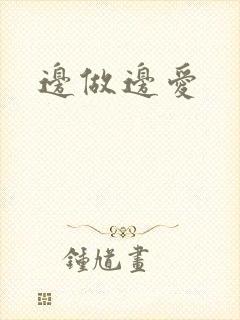 邊做邊愛
鍾馗畫